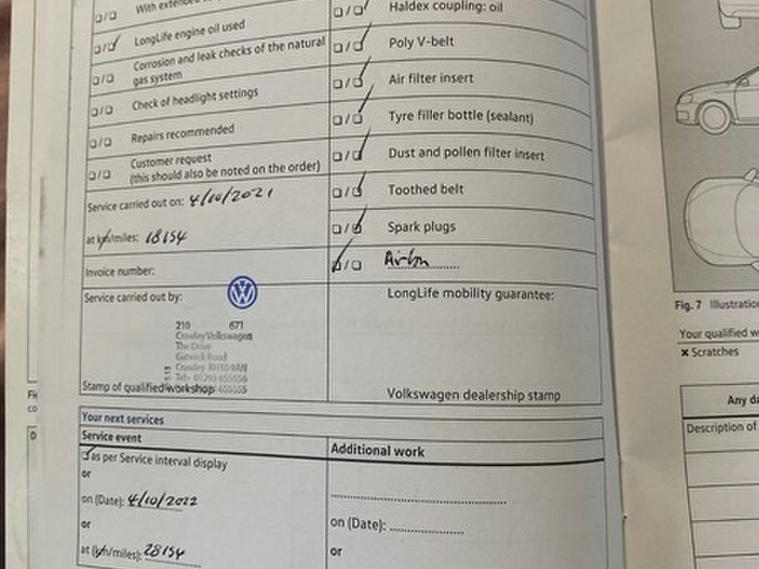 With extended
LongLife engine oil used
Corrosion and leak checks of the natural
gas system
Check of headlight settings
Repairs recommended
Customer request
(this should also be noted on the order)
Service carried out on: 4/10/2021
at km/miles: 18154
Invoice number:
Service carried out by:
210 671
Crawley Volkswagen
The Drive
Gatwick Road
Crawley RH10 9AN
Stamp of qualified workshop
Haldex coupling: oil
Poly V-belt
Air filter insert
Tyre filler bottle (sealant)
Dust and pollen filter insert
Toothed belt
Spark plugs
LongLife mobility guarantee:
Volkswagen dealership stamp
Your next services
Service event
as per Service interval display
or
on (Date): 4/10/2022
or
at (km/miles): 28154
Additional work
on (Date):
or
Fig. 7 Illustratio
Your qualified w
× Scratches
Any da
Description of